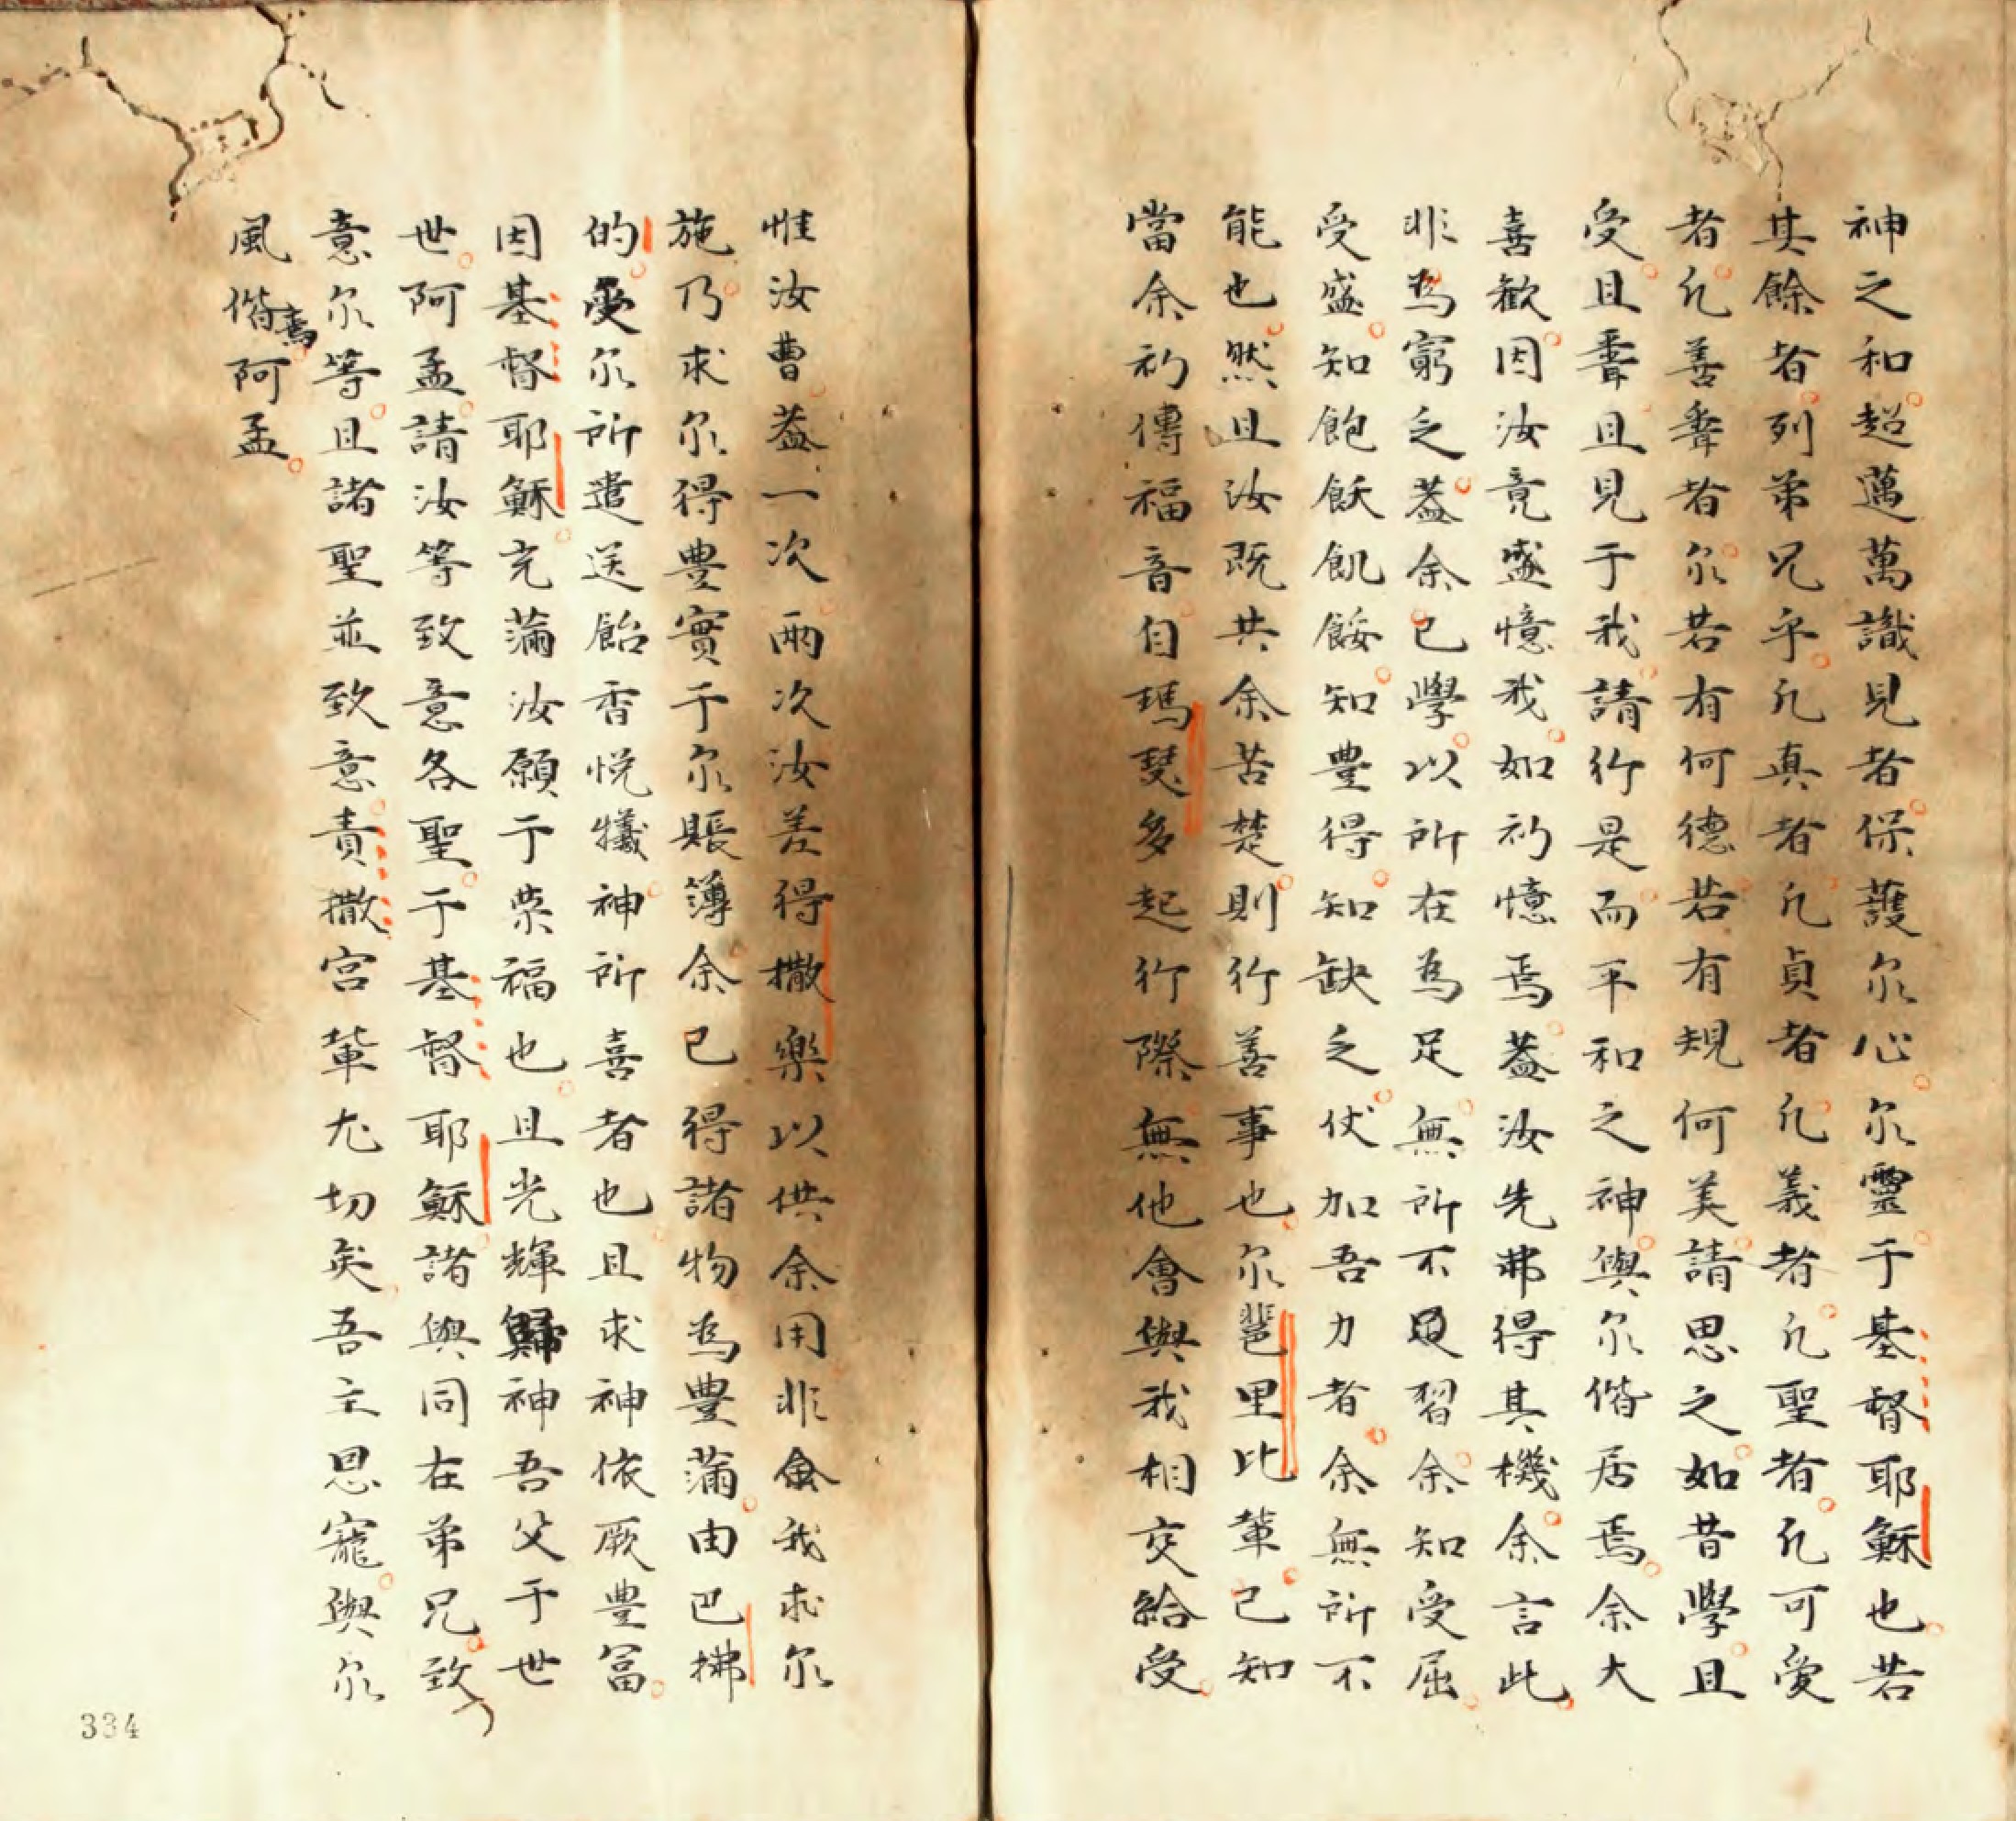 神之和超邁萬識見者保護尔心尔靈于基督耶穌也若
其餘者列弟兄乎凢真者凢貞者凢義者凢聖者凢可愛
者凢善聲者尔若有何德若有規何美請思之如昔學且
受且聽且見于我請行是而平和之神與尔偕居焉余大
喜歡因汝竟盛憶我如礽憶焉葢汝先弗得其機余言此
非為窮乏葢余已學以所在為足無所不足習余知受屈
受盛知飽飫飢餒知豐得知缺乏伏加吾力者余無所不
能也然且汝既共余苦楚則行善事也尔里比輩已知
當余礽傳福音自瑪琹多起行際無他會與我相交給受
惟汝曹葢一次兩次汝差得撒樂以供余用非余我求尔
施乃求尔得豐實于尔賬簿余已得諸物為豐滿由巴拂
的受尔所遣送飴香悅犧神所喜者也且求神依厥豐冨
因基督耶穌充滿汝願于榮福也且光輝歸神吾父于世
世阿孟請汝等致意各聖于基督耶穌諸與同在弟兄致
意尔等且諸聖並致意責撒宮輩尤切矣吾主恩寵與尔
風偕焉阿孟
334